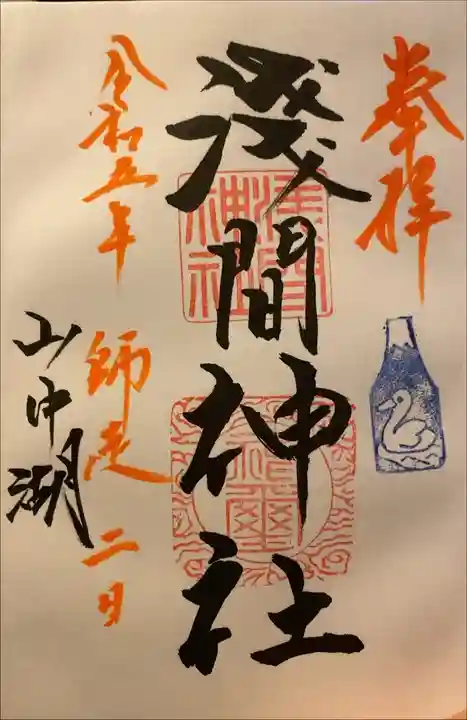 奉拝
淺間神社
淺間神社
令和五年 師走 二日
山中湖